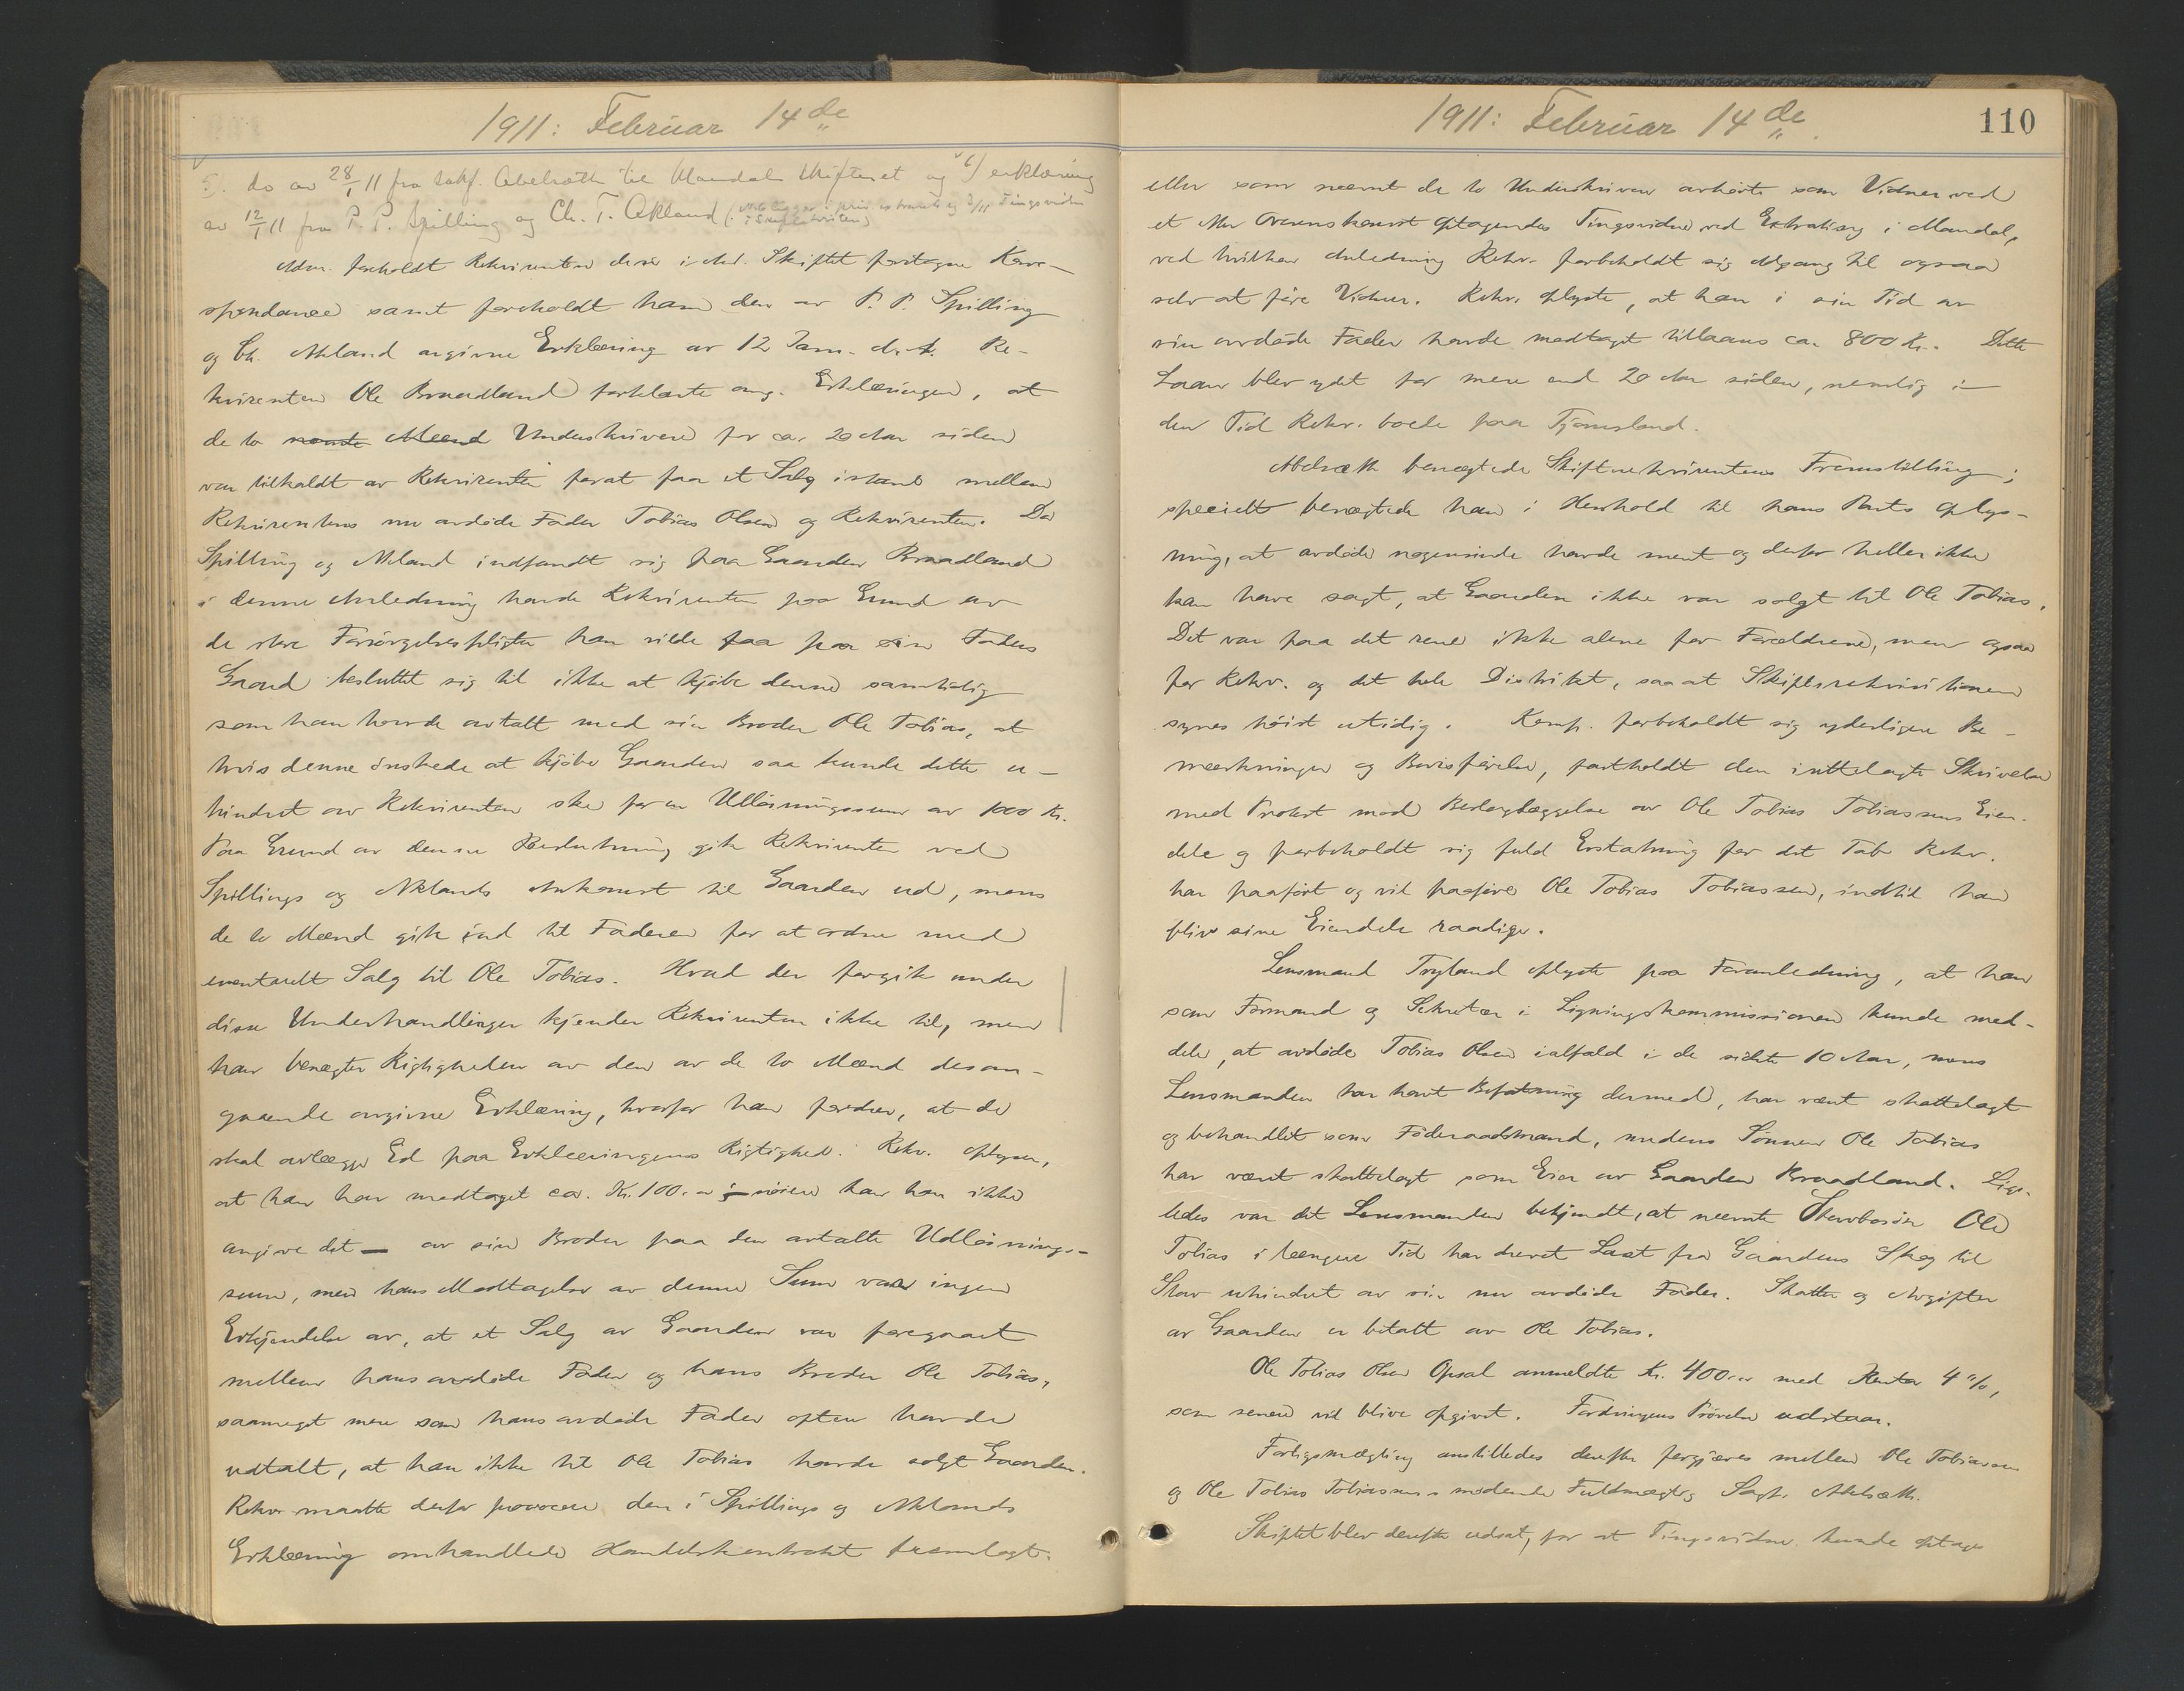 1911: Februar 14de
5). do av 28/1 11 fra sakf. Abelsæth til Mandals skifteret og 6) erklæring
av 12/1 11 fra P. P. Spilling og Ch. T. Akland (: No 6 ligger i Tingsvidne
Adm. foreholdt Rekvirenten den i Skiftet foretagne Korre-
spondance samt foreholdt ham den av P. P. Spilling
og Ch. Akland avgivne Erklæring av 12 Jan. d. A. Re-
kvirenten Ole Braadland forklarte ang. Erklæringen, at
de to nævnte Mænd Underskrivere for ca. 20 Aar siden
var tilkaldt av Rekvirenten forat faa et Salg istand mellem
Rekvirentens nu avdøde Fader Tobias Olsen og Rekvirenten. Da
Spilling og Akland indfandt sig paa Gaarden Braadland
i denne Anledning havde Rekvirenten paa Grund av
de store Forsørgelsespligter han vilde faa paa sin Faders
Gaard besluttet sig til ikke at kjøbe denne samtidig
som han havde avtalt med sin Broder Ole Tobias, at
hvis denne ønskede at kjøbe Gaarden saa kunde dette u-
hindret av Rekvirenten ske for en Utløsningssum av 1000 Kr.
Paa Grund av denne Beslutning gik Rekvirenten ved
Spillings og Aklands Ankomst til Gaarden ud, mens
de to Mænd gik ind til Faderen for at ordne med
eventuelt Salg til Ole Tobias. Hvad der foregik under
disse Underhandlinger kjender Rekvirenten ikke til, men
han benægter Rigtigheden av den av de to Mænd desan-
gaaende avgivne Erklæring, hvorfor han fordrer, at de
skal avlægge Ed paa Erklæringens Rigtighed. Rekv. oplyser,
at han har modtaget ca. Kr. 100.00 – nøiere kan han ikke
angive det – av sin Broder paa den avtalte Udløsnings-
sum, men hans Modtagelse av denne Sum var ingen
Erkjendelse av, at et Salg av Gaarden var foregaaet
mellem hans avdøde Fader og hans Broder Ole Tobias,
saameget mere som hans avdøde Fader ofte havde
udtalt, at han ikke til Ole Tobias havde solgt Gaarden.
Rekv. maatte derfor provocere den i Spillings og Aklands
Erklæring omhandlede Handelskontrakt fremlagt.
1911: Februar 14de
110
eller som nævnt de to Underskrivere avhørte som Vidner ved
et efter Overenskomst optagendes Tingsvidne ved Extrating i Mandal,
ved hvilken Anledning Rekv. forbeholdt sig Adgang til ogsaa
selv at føre Vidner. Rekv. oplyste, at han i sin Tid av
sin avdøde Fader havde modtaget tillaans ca. 800 Kr. Dette
Laan blev ydet for mere end 20 Aar siden, nemlig i
den Tid Rekv. boede paa Tjomsland.
Abelsæth benægtede Skifterekvirentens Fremstilling;
specielt benægtede han i Henhold til hans Parts Oplys-
ning, at avdøde nogensinde havde ment og derfor heller ikke
kan have sagt, at Gaarden ikke var solgt til Ole Tobias.
Det var paa det rene ikke alene for Forældrene, men ogsaa
for Rekv. og det hele Distrikt, saa at Skifterekvisitionen
synes høist utidig. Komp. forbeholdt sig yderligere Be-
mærkninger og Bevisførelse, fastholdt den inttelagte Skrivelse
med Protest mod Beslaglæggelse av Ole Tobias Tobiassens Eien-
dele og forbeholdt sig fuld Erstatning for det Tab Rekv.
har paaført og vil paaføre Ole Tobias Tobiassen, indtil han
bliver sine Eiendele raadige.
Lensmand Tryland oplyste paa Foranledning, at han
som Formand og Sekretær i Ligningskommissionen kunde med-
dele, at avdøde Tobias Olsen ialfald i de sidste 10 Aar, mens
Lensmanden har havt Befatning dermed, har været skattelagt
og behandlet som Føderaadsmand, medens Sønnen Ole Tobias
har været skattelagt som Eier av Gaarden Braadland. Lige-
ledes var det Lensmanden bekjendt, at nævnte Ole
Tobias i længere Tid har drevet Last fra Gaardens Skog til
uhindret av sin nu avdøde Fader. Skatter og Avgifter
av Gaarden er betalt av Ole Tobias.
Ole Tobias Olsen Opsal anmeldte Kr. 400.00 med Renter 4 %,
som senere vil blive opgivet. Fordringens Prøvelse udstaar.
Forligsmægling anstilledes derefter forgjæves mellem Ole Tobiassen
og Ole Tobias Tobiassens mødende Fuldmægtig Sagf. Abelsæth.
Skiftet blev derefter udsat, for at Tingsvidne kunde optages